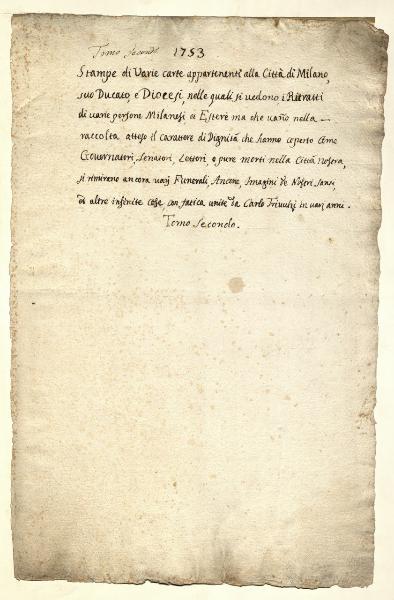 Tomo secondo 1753
Stampe di Varie carte appartenenti alla Città di Milano,
suo Ducato, e Diocesi, nelle quali si vedono i Ritratti
di varie persone Milanesi ò Estere ma che vaño nella
raccolta atteso il Carattere di Dignità che hanno coperto come
Governatori, Senatori, Lettori, o pure morti nella Città Nostra,
si rimirano ancora varj Funerali, Ancone, Imagini de Nostri Santi,
ed altre infinite cose con fatica unite da Carlo Trivulzi in varj anni.
Tomo Secondo.